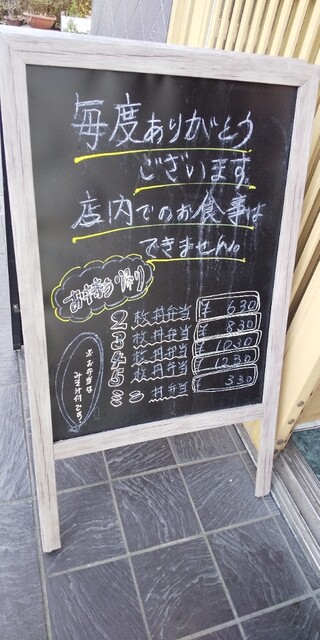 毎度ありがとう
ございます。
店内でのお食事は
できません。
お弁当お持ち帰り
2枚丼弁当 ¥630
3枚丼弁当 ¥830
4枚丼弁当 ¥1030
5枚丼弁当 ¥1230
ミニ丼弁当 ¥330
※お弁当は
みそ汁付です。